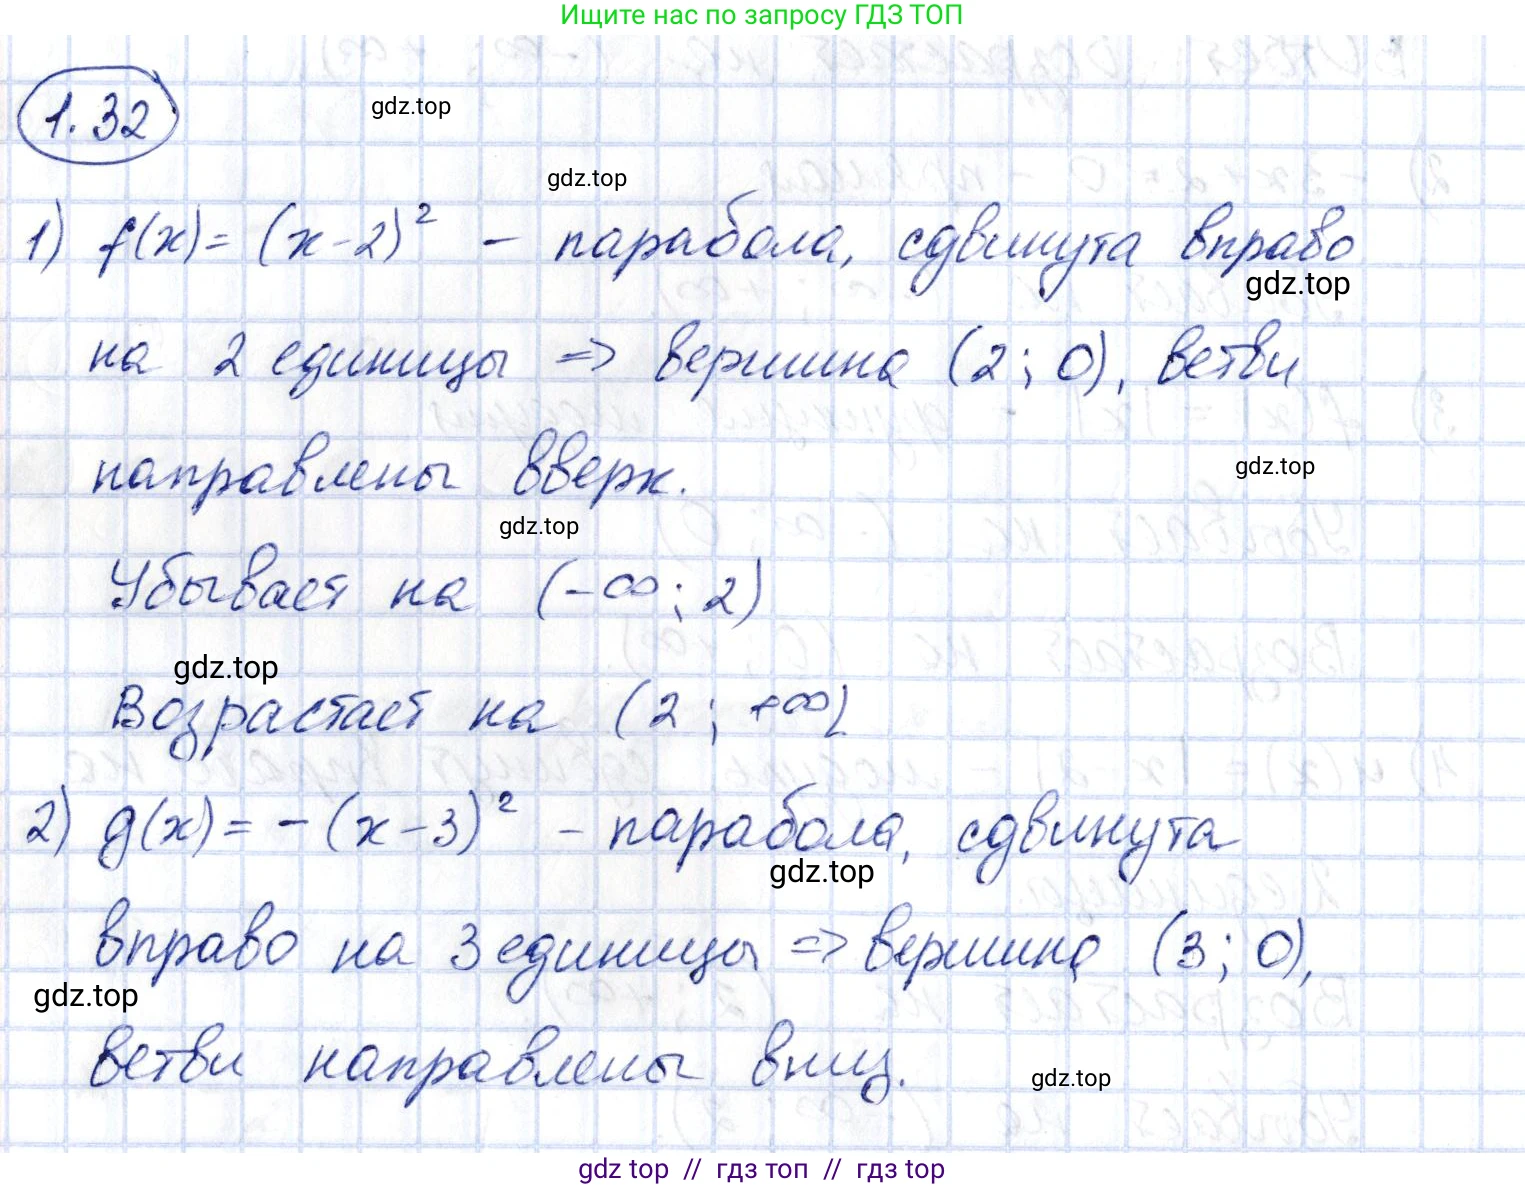 Ищите нас по запросу ГДЗ ТОП
1.32
gdz.top
gdz.top
1) f(x) = (x-2)² - парабола, сдвинута вправо
gdz.top
на 2 единицы => вершина (2; 0), ветви
направлены вверх.
gdz.top
gdz.top
Убывает на (-∞; 2)
gdz.top
Возрастает на (2; +∞)
2) g(x) = -(x-3)² - парабола, сдвинута
gdz.top
вправо на 3 единицы => вершина (3; 0),
gdz.top
ветви направлены вниз.
gdz.top
gdz top // гдз топ // gdz top